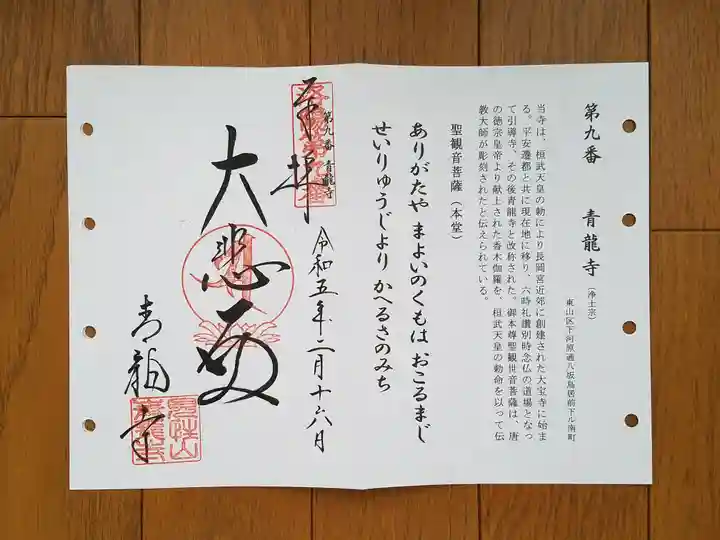 第九番　青龍寺（浄土宗）
東山区下河原通八坂鳥居前下ル南町
当寺は、桓武天皇の勅により長岡宮近郊に創建された大宝寺に始ま
る。平安遷都と共に現在地に移り、六時礼讃別時念仏の道場となっ
て引導寺、その後青龍寺と改称された。御本尊聖観世音菩薩は、唐
の徳宗皇帝より献上された香木伽羅を、桓武天皇の勅命を以って伝
教大師が彫刻されたと伝えられている。
聖観音菩薩（本堂）
ありがたや まよいのくもは おこるまじ
せいりゅうじより かへるさのみち
第九番 青龍寺
奉拝
令和五年二月十六日
大悲殿
青龍寺